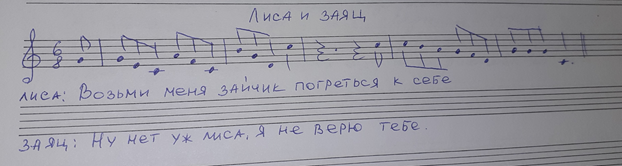 Лиса и заяц
6
8
Лиса: Возьми меня зайчик погреться к себе
Заяц: Ну нет уж лиса, я не верю тебе.